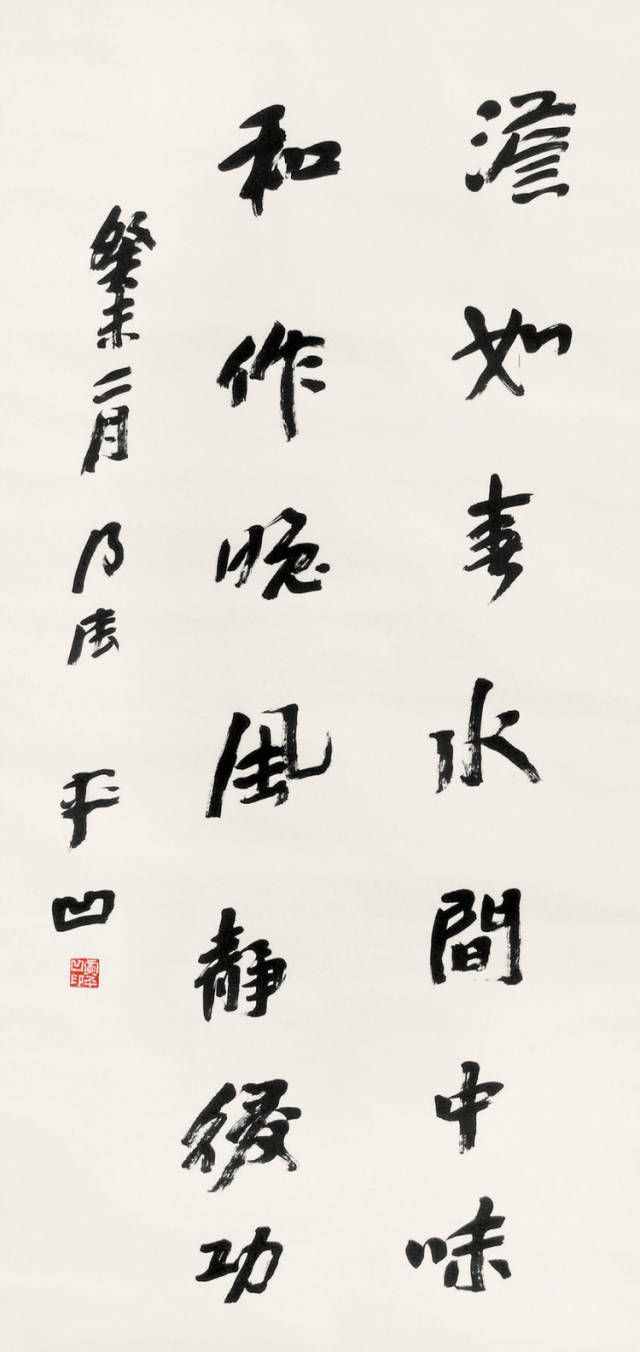 澹如春水間中味
和作晚風靜後功
癸未二月
平凹